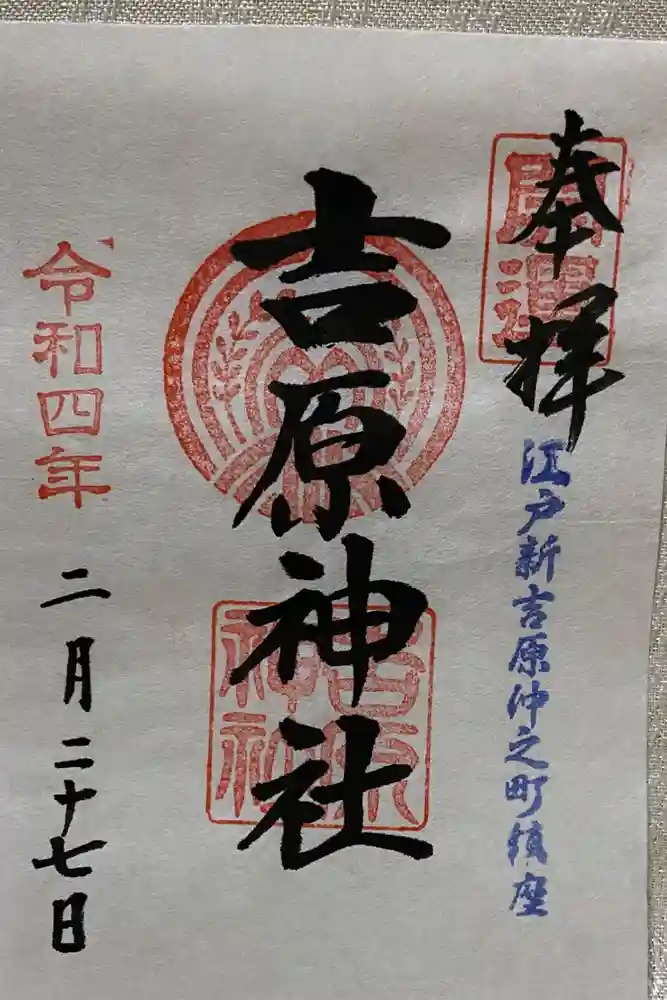 奉拝
開運
江戸新吉原仲之町鎮座
吉原神社
吉原
神社
令和四年
二月二十七日